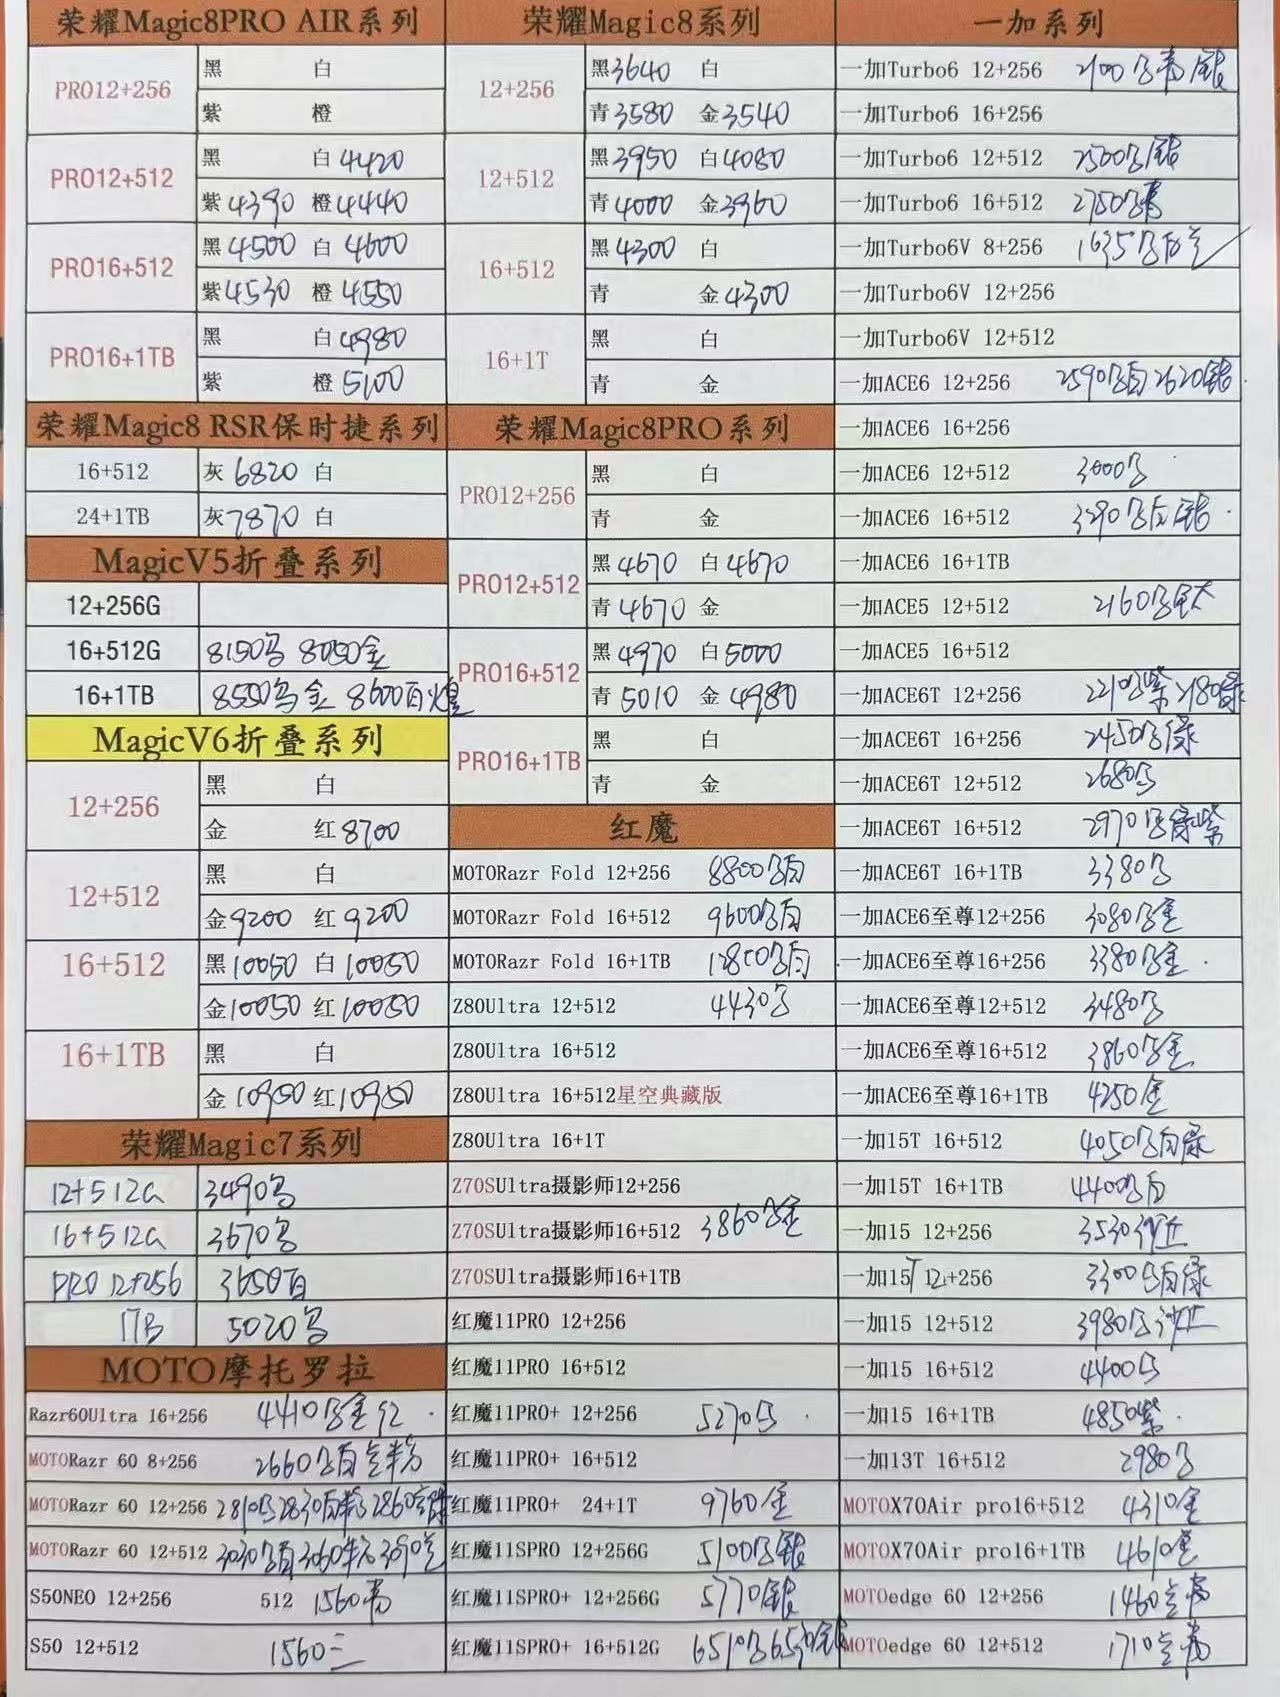 荣耀Magic8PRO AIR系列
PRO12+256
黑 白
紫 橙
PRO12+512
黑 白4420
紫4390 橙4440
PRO16+512
黑4500 白4600
紫4530 橙4550
PRO16+1TB
黑 白4980
紫 橙5100
荣耀Magic8 RSR保时捷系列
16+512 灰6820 白
24+1TB 灰7870 白
MagicV5折叠系列
12+256G
16+512G 8150乌 8050金
16+1TB 8550乌金 8600百
MagicV6折叠系列
12+256
黑 白
金 红8700
12+512
黑 白
金9200 红9200
16+512
黑10050 白10050
金10050 红10050
16+1TB
黑 白
金10950 红10950
荣耀Magic7系列
12+512G 3490乌
16+512G 3670乌
PRO 12+256 3650百
1TB 5020乌
MOTO摩托罗拉
Razr60Ultra 16+256 4410
MOTORazr 60 8+256 2660
MOTORazr 60 12+256 2810 2830 2860
MOTORazr 60 12+512 3030 3060
S50NEO 12+256 512 1560青
S50 12+512 1560
荣耀Magic8系列
12+256
黑3640 白
青3580 金3540
12+512
黑3950 白4080
青4000 金3960
16+512
黑4300 白
青 金4300
16+1T
黑 白
青 金
荣耀Magic8PRO系列
PRO12+256
黑 白
青 金
PRO12+512
黑4670 白4670
青4670 金
PRO16+512
黑4970 白5000
青5010 金4980
PRO16+1TB
黑 白
青 金
红魔
MOTORazr Fold 12+256 8800乌百
MOTORazr Fold 16+512 9600乌百
MOTORazr Fold 16+1TB 12800乌百
Z80Ultra 12+512 4430乌
Z80Ultra 16+512
Z80Ultra 16+512星空典藏版
Z80Ultra 16+1T
Z70SUltra摄影师12+256
Z70SUltra摄影师16+512 3860
Z70SUltra摄影师16+1TB
红魔11PRO 12+256
红魔11PRO 16+512
红魔11PRO+ 12+256 5270乌
红魔11PRO+ 16+512
红魔11PRO+ 24+1T 9760金
红魔11SPRO 12+256G 5100乌银
红魔11SPRO+ 12+256G 5770银
红魔11SPRO+ 16+512G 6510乌
一加系列
一加Turbo6 12+256 2100乌青银
一加Turbo6 16+256
一加Turbo6 12+512 2500乌银
一加Turbo6 16+512 2750乌青
一加Turbo6V 8+256 1635乌
一加Turbo6V 12+256
一加Turbo6V 12+512
一加ACE6 12+256 2590乌百2620银
一加ACE6 16+256
一加ACE6 12+512 3000乌
一加ACE6 16+512 3290乌百银
一加ACE6 16+1TB
一加ACE5 12+512 2160
一加ACE5 16+512
一加ACE6T 12+256 2210乌紫2180绿
一加ACE6T 16+256 2450乌绿
一加ACE6T 12+512 2680乌
一加ACE6T 16+512 2970乌绿紫
一加ACE6T 16+1TB 3380乌
一加ACE6至尊12+256 3080乌金
一加ACE6至尊16+256 3380乌金
一加ACE6至尊12+512 3480乌
一加ACE6至尊16+512 3860乌金
一加ACE6至尊16+1TB 4250金
一加15T 16+512 4050乌百绿
一加15T 16+1TB 4400乌百
一加15 12+256 3530
一加15T 12+256 3300乌百绿
一加15 12+512 3980乌
一加15 16+512 4400乌
一加15 16+1TB 4850紫
一加13T 16+512 2980乌
MOTOX70Air pro16+512 4310金
MOTOX70Air pro16+1TB 4610
MOTOedge 60 12+256 1460
MOTOedge 60 12+512 1710